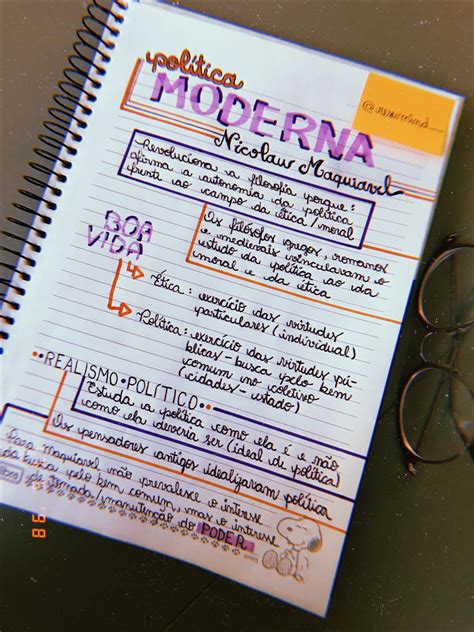 política
MODERNA
Nicolau Maquiavel
Revoluciona a filosofia porque:
afirma a autonomia da política
frente ao campo da ética/moral
Os filósofos gregos, romanos
e medievais vinculavam o
estudo da política ao da
moral e da ética
BOA
VIDA
Ética: exercício das virtudes
particulares (individual)
Política: exercício das virtudes pú-
blicas - busca pelo bem
comum no coletivo
(cidades - estado)
REALISMO POLÍTICO
Estuda a política como ela é e não
como ela deveria ser (ideal de política)
Os pensadores antigos idealizavam política
Para Maquiavel não prevalesce o interesse
da busca pelo bem comum, mas o interesse
de tomada/manutenção do PODER
98